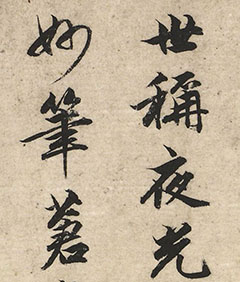 世稱夜光
妙筆蒼